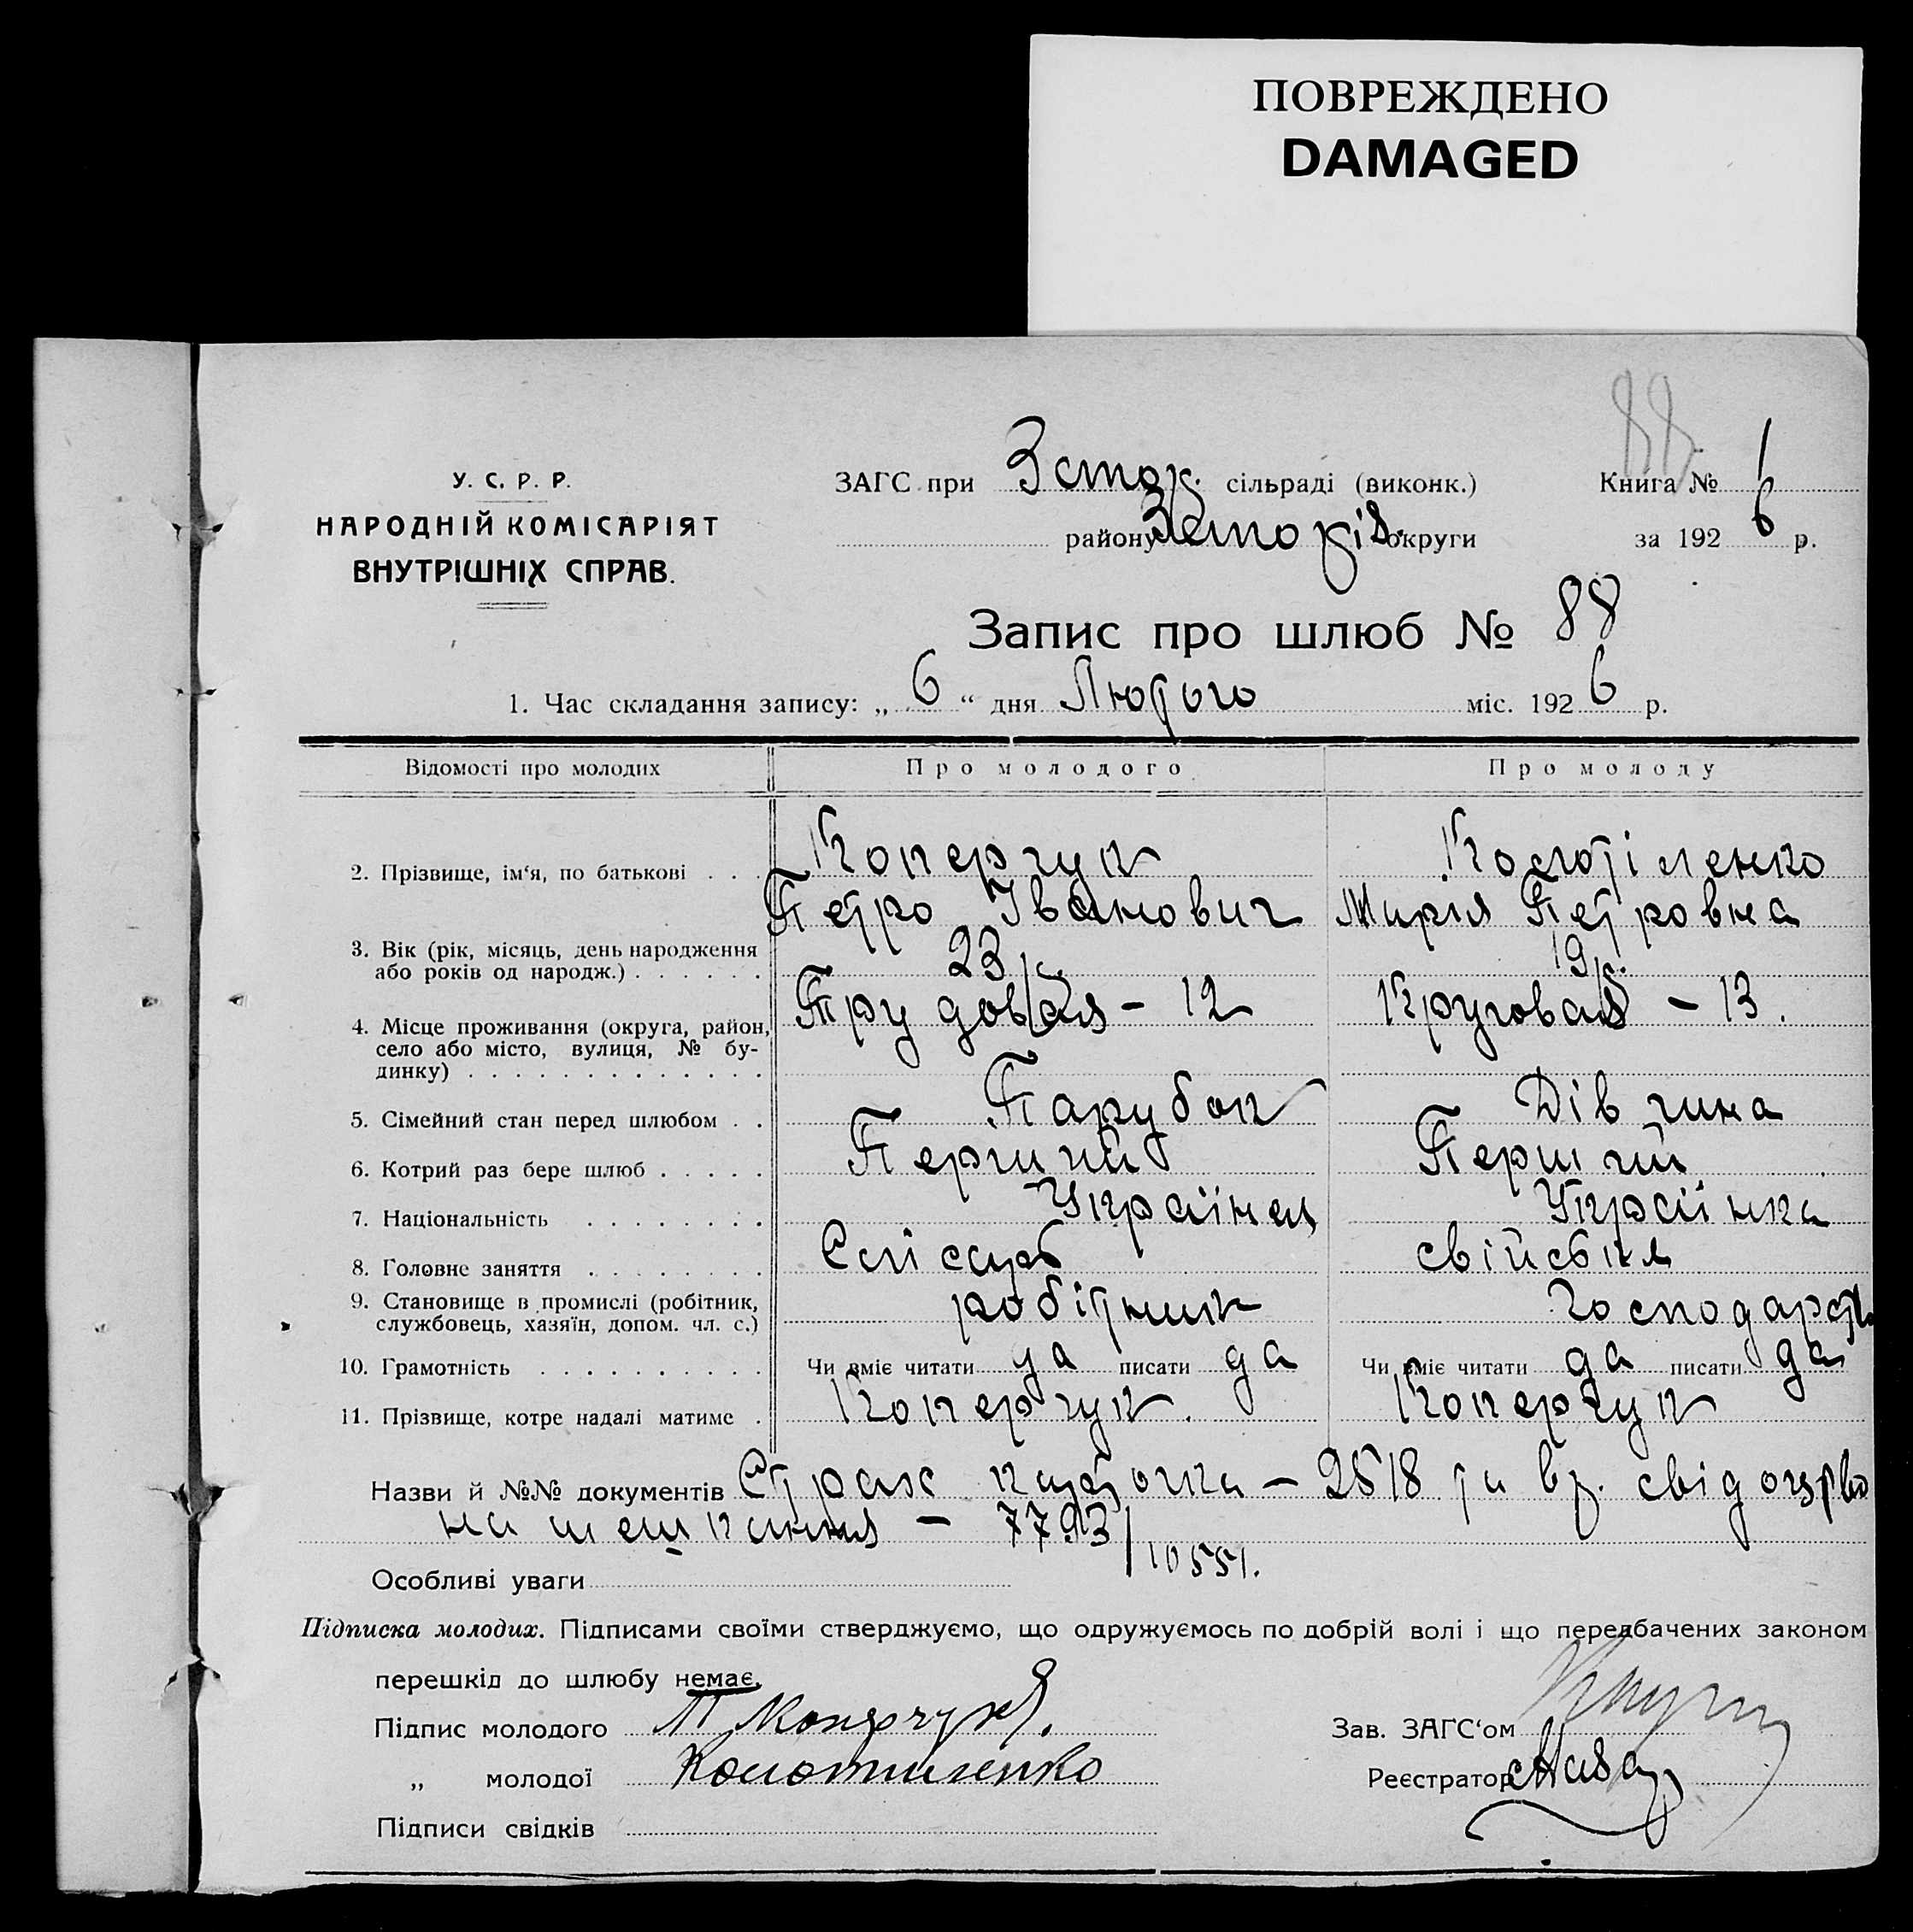 ПОВРЕЖДЕНО
DAMAGED
88.
У. С. Р. Р.
НАРОДНІЙ КОМІСАРІЯТ
ВНУТРІШНІХ СПРАВ.
ЗАГС при сільраді (виконк.) Книга № 1
району округи за 1926 р.
Запис про шлюб № 88
1. Час складання запису: „ 6 “ дня Лютого міс. 1926 р.
Відомості про молодих Про молодого Про молоду
2. Прізвище, ім‘я, по батькові . . . Коперчук Колотіленко
Петро Іванович Марія Петровна
3. Вік (рік, місяць, день народження або років од народж.) . . . . . . 23 р. 19 р.
4. Місце проживання (округа, район, село або місто, вулиця, № будинку) . . . . . . . . . . . . . Трудовая – 12 Круговая – 13.
5. Сімейний стан перед шлюбом . . Парубок Дівчина
6. Котрий раз бере шлюб . . . . . Перший Перший
7. Національність . . . . . . . . Українец Українка
8. Головне заняття . . . . . . . . Слісарь свійське
9. Становище в промислі (робітник, службовець, хазяїн, допом. чл. с.) робітник господарство
10. Грамотність . . . . . . . . . . Чи вміє читати да писати да Чи вміє читати да писати да
11. Прізвище, котре надалі матиме . Коперчук. Коперчук
Назви й №№ документів Страх карточка – 2518 та свідоцтво
на мешкання – 7793/10551.
Особливі уваги
Підписка молодих. Підписами своїми стверджуємо, що одружуємось по добрій волі і що передбачених законом
перешкід до шлюбу немає.
Підпис молодого П Коперчукъ. Зав. ЗАГС‘ом
„ молодої Колотиленко Реєстратор
Підписи свідків